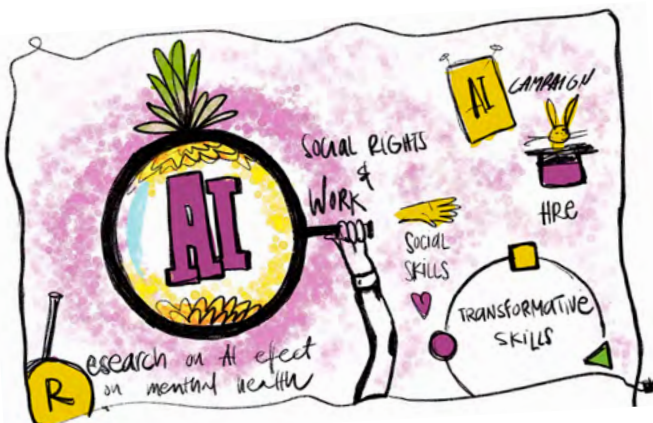 AI
SOCIAL RIGHTS
&
WORK
AI
CAMPAIGN
HRE
SOCIAL
SKILLS
TRANSFORMATIVE
SKILLS
Research on AI effect
on menthal health